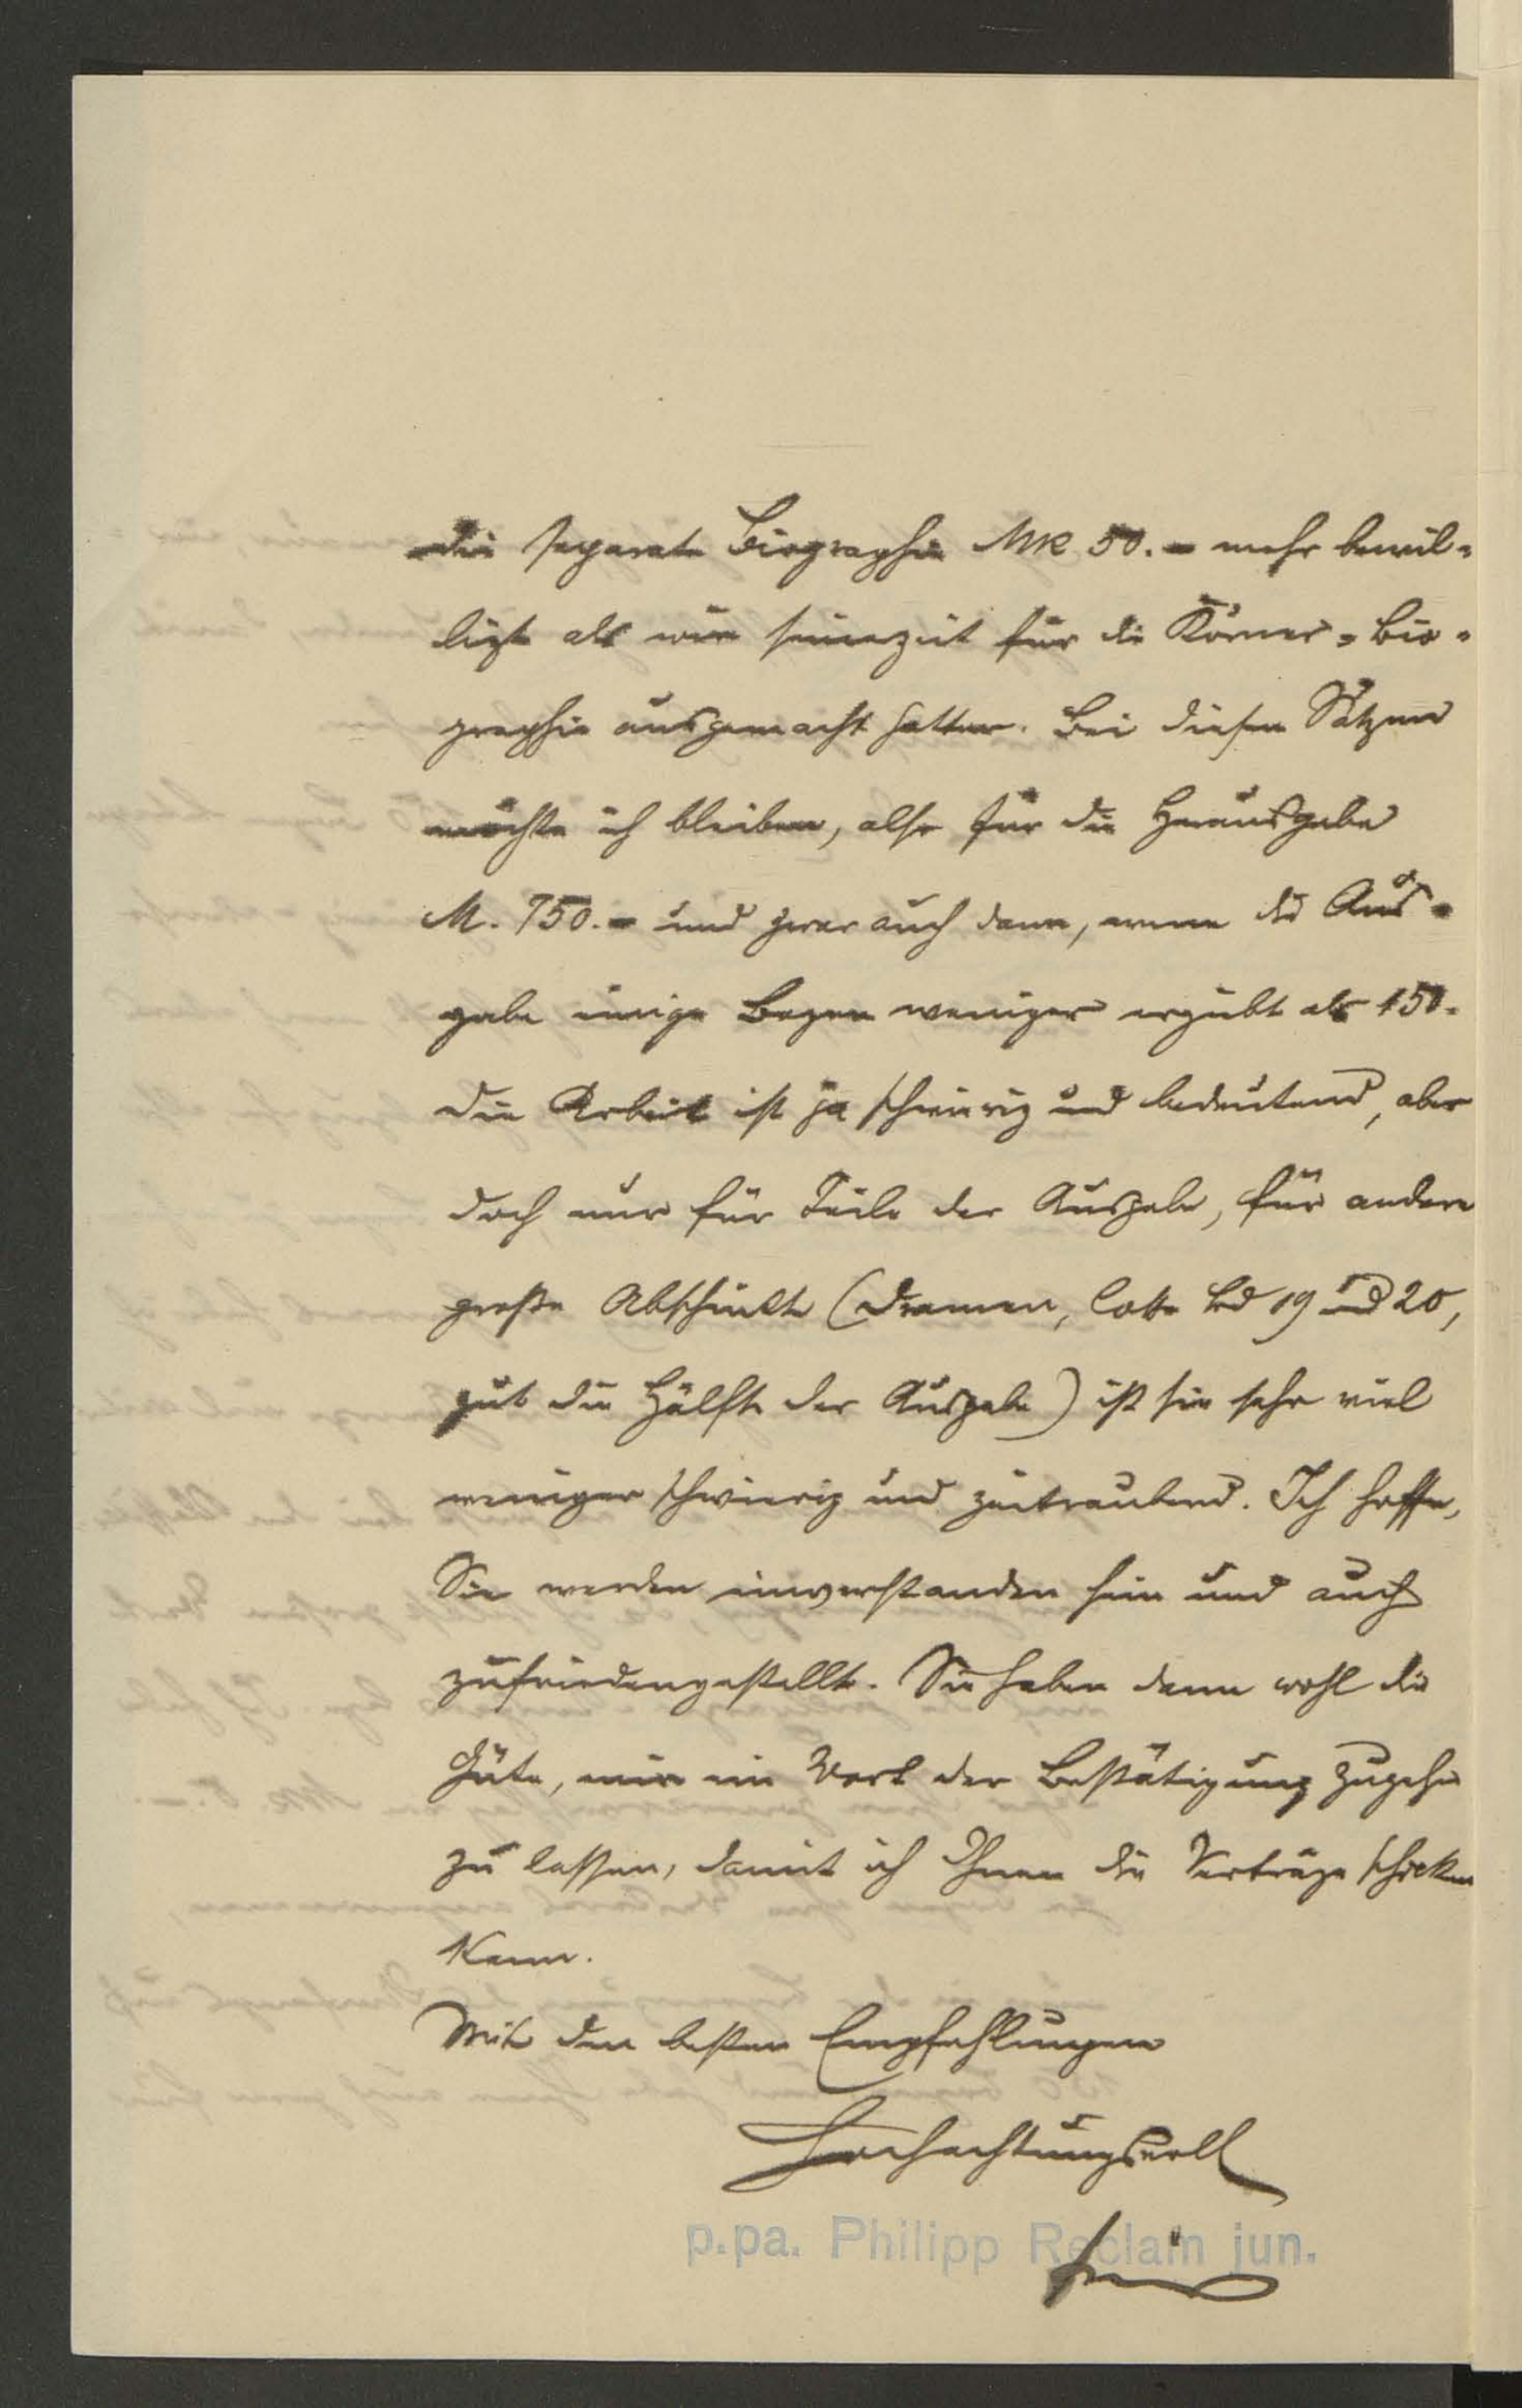 die separate Biographie MK 50.- mehr bewil-
ligt als wir seinerzeit für die Körner-Bio-
graphie ausgemacht hatten. Bei diesen Sätzen
möchte ich bleiben, also für die Herausgabe
M. 750.- und zwar auch dann, wenn die Aus-
gabe einige Bogen weniger ergiebt als 150.
Die Arbeit ist ja schwierig und bedeutend, aber
doch nur für Teile der Ausgabe, für andere
große Abschnitte (Dramen, Cotta Bd 19 und 20,
gut die Hälfte der Ausgabe) ist sie sehr viel
weniger schwierig und zeitraubend. Ich hoffe,
Sie werden einverstanden sein und auch
zufriedengestellt. Sie haben dann wohl die
Güte, mir ein Wort der Bestätigung zugehen
zu lassen, damit ich Ihnen die Verträge schicken
kann.
Mit den besten Empfehlungen
Hochachtungsvoll
p.pa. Philipp Reclam jun.